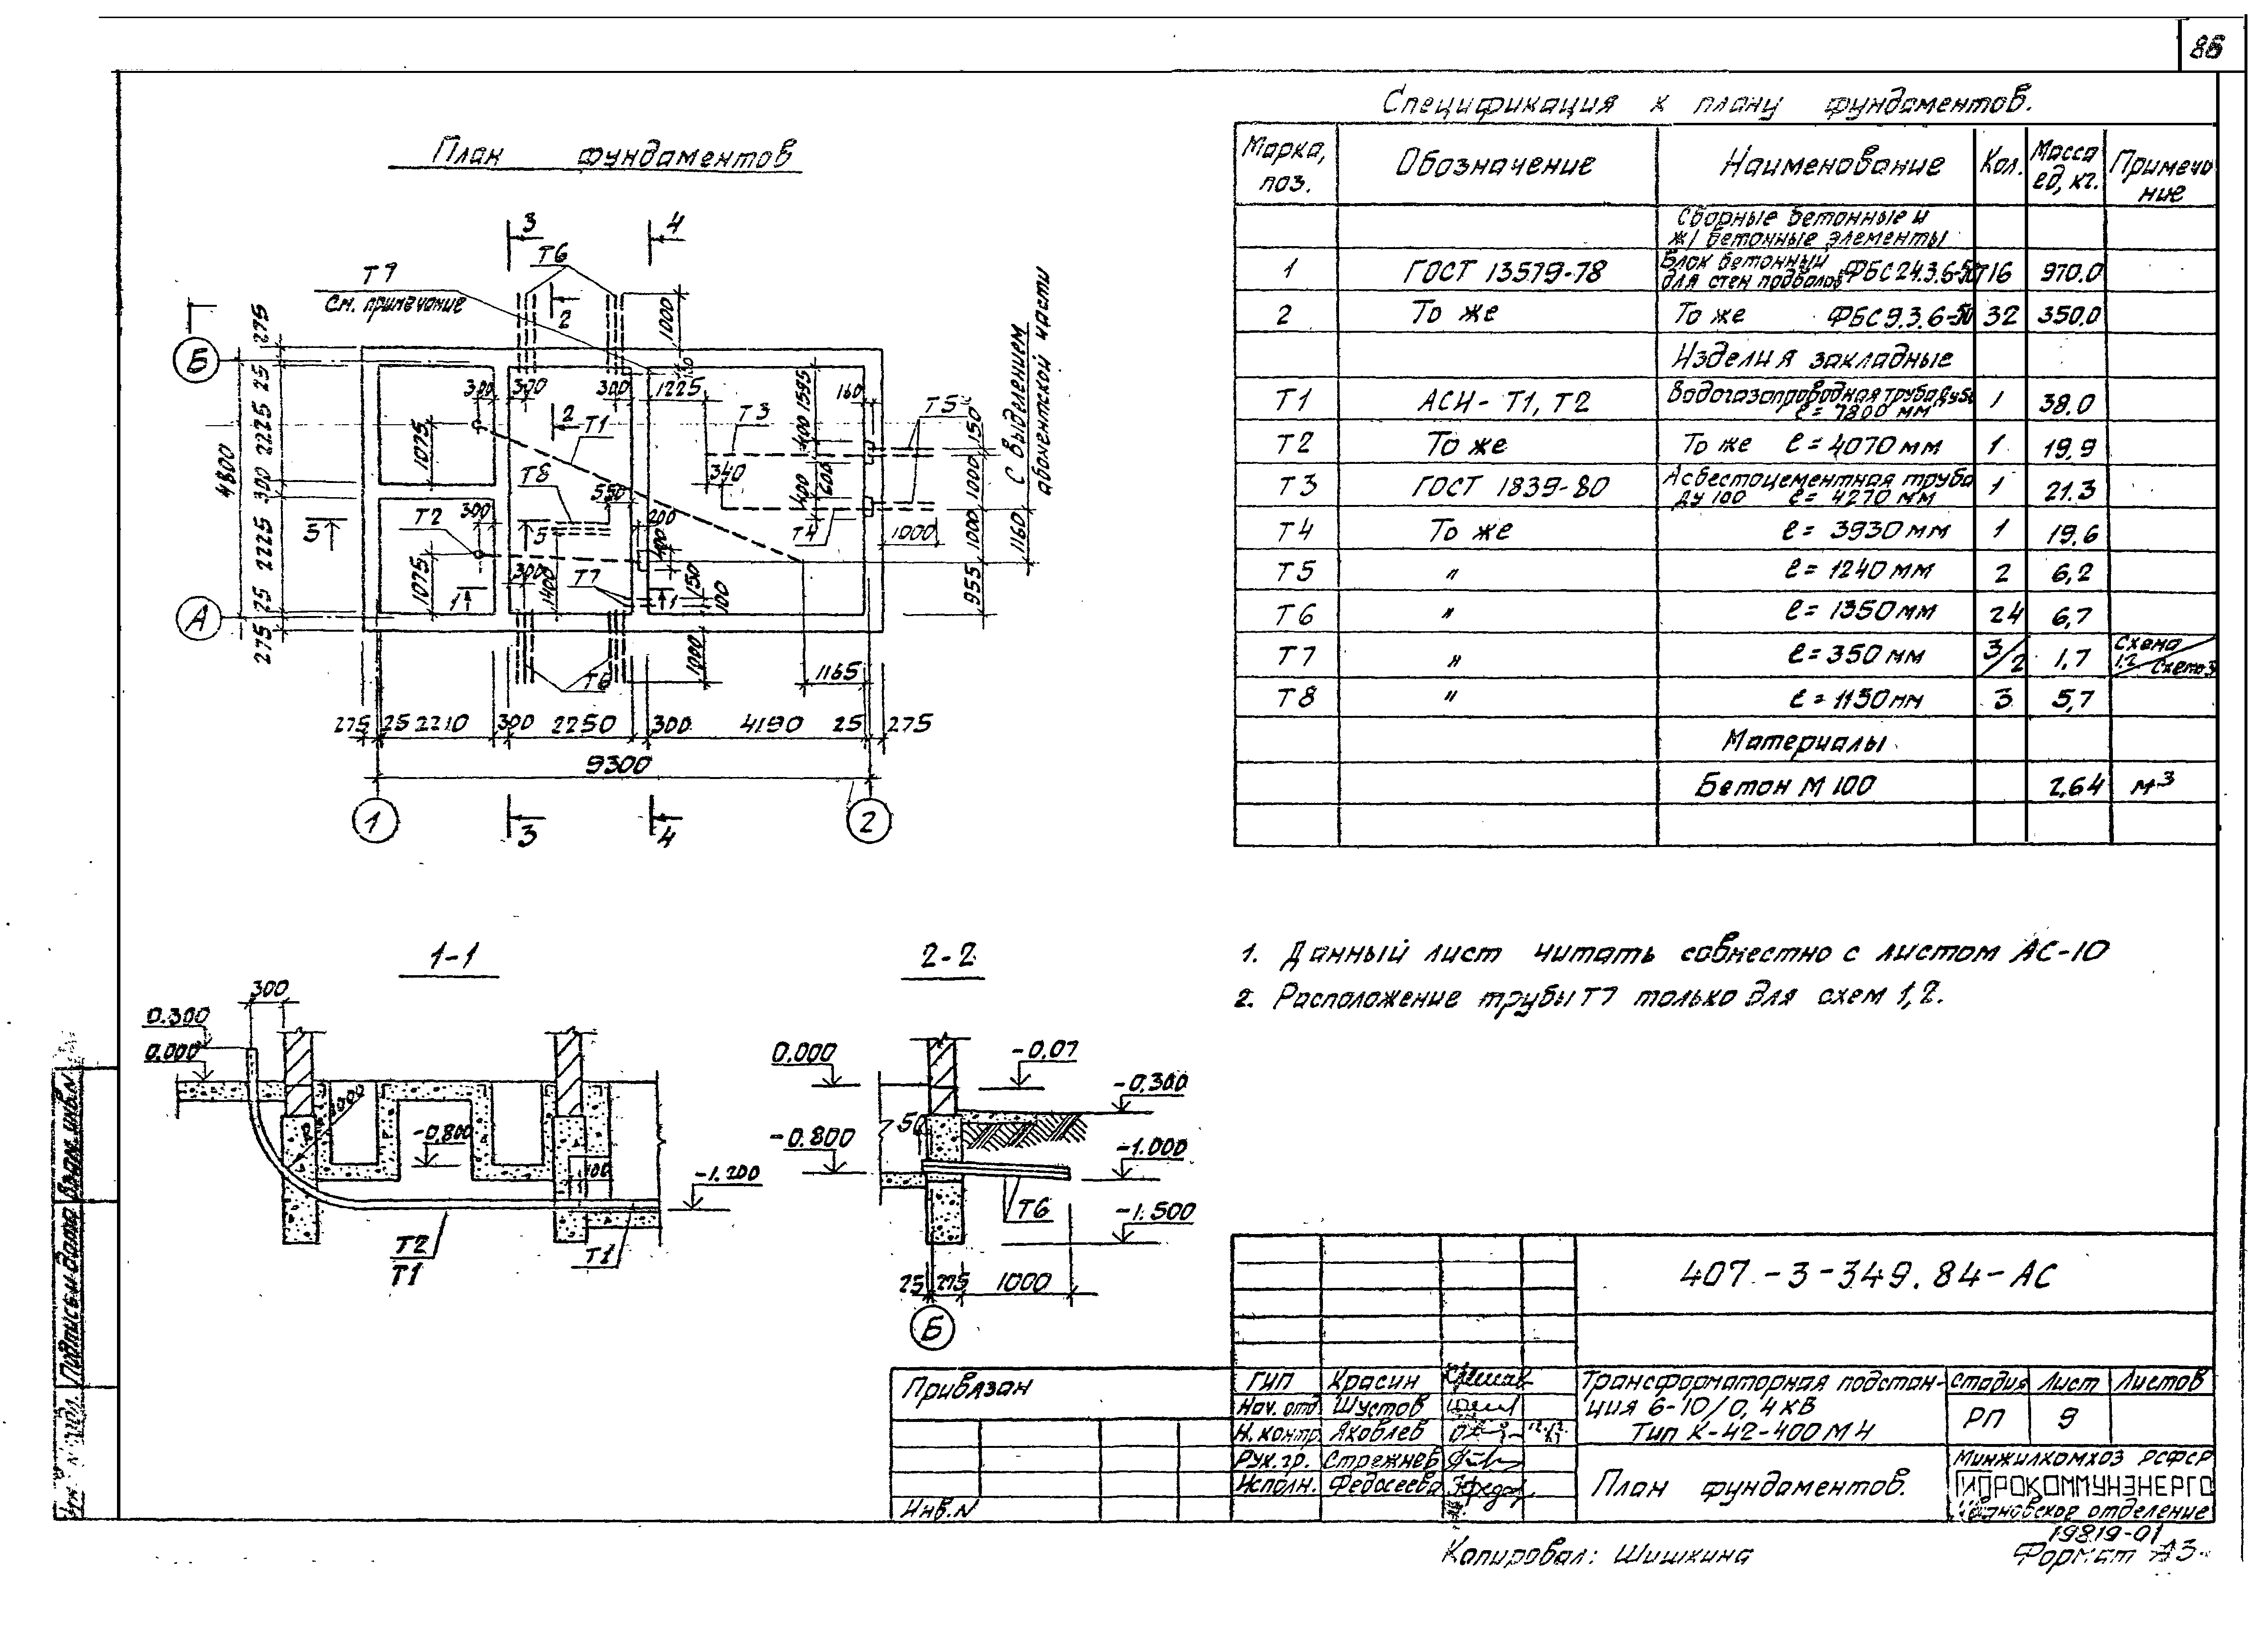 86
План фундаментов
3
4
Т6
Т7
см. примечание
2
1000
С выделением
абонентской части
Б
275
25
2225
300
2225
25
275
4800
300
300
300
1225
1595
160
Т5
2
Т1
Т3
400
150
1075
340
Т8
550
600
400
1000
Т2
300
200
5
5
400
Т4
1000
1000
1160
1075
300
1400
Т7
150
100
955
1
1
А
1000
Т6
1165
275
25
2210
300
2250
300
4190
25
275
9300
1
2
3
4
Спецификация к плану фундаментов.
Марка, поз.
Обозначение
Наименование
Кол.
Масса ед, кг.
Примечание
Сборные бетонные и
ж/бетонные элементы
1 ГОСТ 13579-78 Блок бетонный для стен подвалов ФБС24.3.6-50т 16 970.0
2 То же То же ФБС9.3.6-50 32 350.0
Изделия закладные
Т1 АСИ-Т1, Т2 Водогазопроводная труба ду50 ℓ= 7800 мм 1 38.0
Т2 То же То же ℓ= 4070 мм 1 19,9
Т3 ГОСТ 1839-80 Асбестоцементная труба ду 100 ℓ= 4270 мм 1 21.3
Т4 То же ℓ= 3930 мм 1 19.6
Т5 " ℓ= 1240 мм 2 6,2
Т6 " ℓ= 1350 мм 24 6,7
Т7 " ℓ= 350 мм 3/2 1,7 Схема 1,2 / Схема 3
Т8 " ℓ= 1150 мм 3 5,7
Материалы
Бетон М 100 2,64 м3
1-1
300
0.300
0.000
-0,800
100
-1.200
Т2
Т1
Т1
2-2
0.000
-0.07
-0.300
50
-0.800
-1.000
Т6
-1.500
25
275
1000
Б
1. Данный лист читать совместно с листом АС-10
2. Расположение трубы Т7 только для схем 1,2.
407-3-349.84-АС
Привязан
Инв.N
ГИП Красин
Нач. отд Шустов
Н. контр. Яковлев
Рук. гр. Стрежнев
Исполн. Федосеева
Трансформаторная подстан-
ция 6-10/0,4 кВ
Тип К-42-400 М4
Стадия Лист Листов
РП 9
План фундаментов.
Минжилкомхоз РСФСР
ГИПРОКОММУНЭНЕРГО
Ивановское отделение
19819-01
Копировал: Шишкина
Формат А3
Подпись и дата
Взам. инв. N